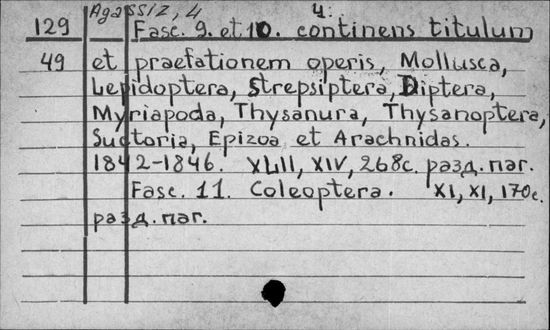 Agassiz, 4
129 Fasc. 9. et 10. continens titulum
49 et praefationem operis, Mollusca,
Lepidoptera, Strepsiptera, Diptera,
Myriapoda, Thysanura, Thysanoptera,
Suctoria, Epizoa et Arachnidas.
1842-1846. XLII, XIV, 268с. разд. паг.
Fasc. 11. Coleoptera. XI, XI, 170с.
разд. паг.